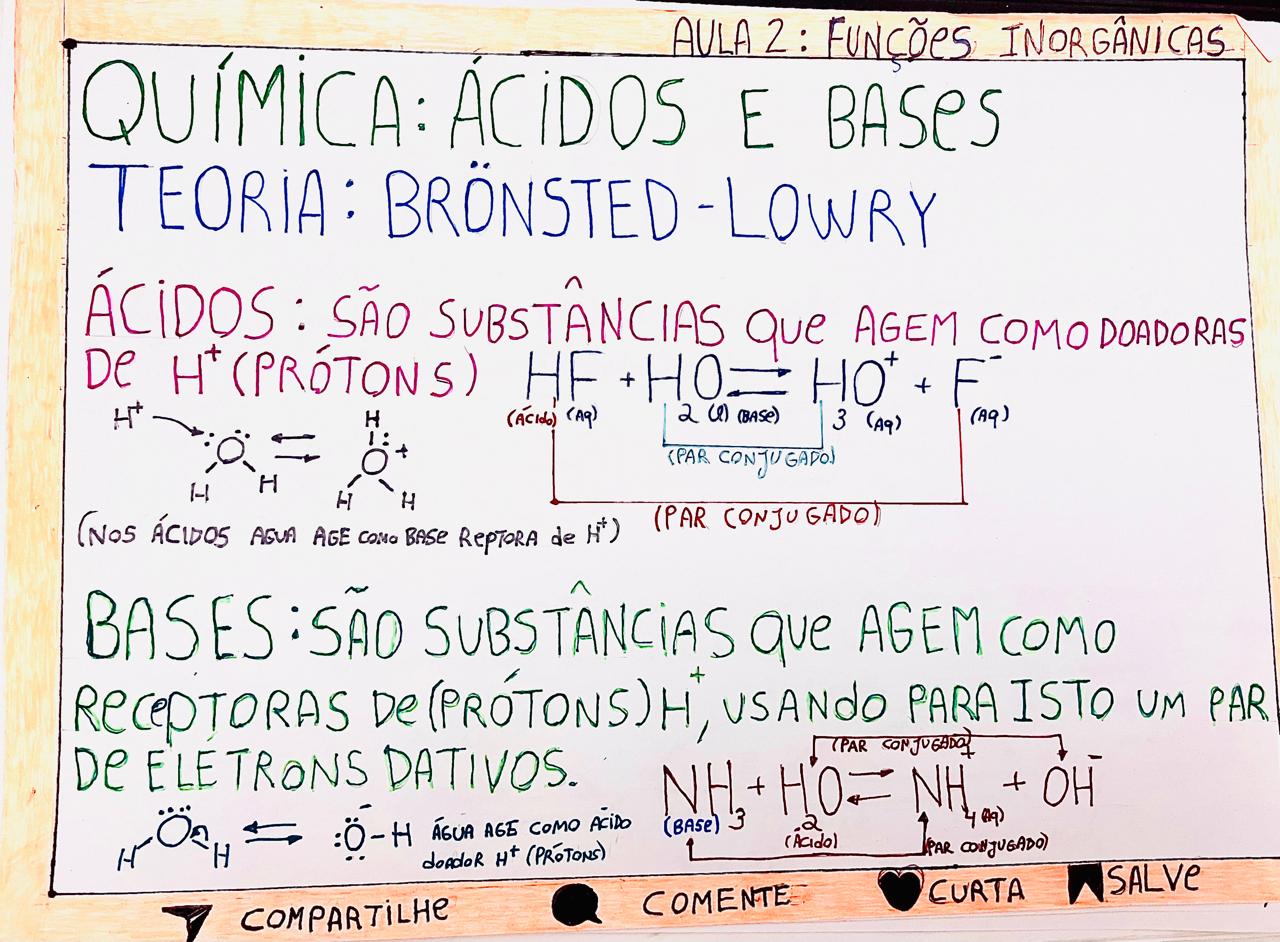 AULA 2: FUNÇÕES INORGÂNICAS
QUÍMICA: ÁCIDOS E BASES
TEORIA: BRÖNSTED-LOWRY
ÁCIDOS: SÃO SUBSTÂNCIAS QUE AGEM COMO DOADORAS
DE H⁺ (PRÓTONS)
HF + HO ⇌ HO⁺ + F⁻
(ÁCIDO) (Aq) 2 (l) (BASE) 3 (Aq) (Aq)
(PAR CONJUGADO)
(PAR CONJUGADO)
H⁺ :O: ⇌ H
H H :O⁺
H H
(NOS ÁCIDOS AGUA AGE COMO BASE REPTORA de H⁺)
BASES: SÃO SUBSTÂNCIAS QUE AGEM COMO
RECEPTORAS DE (PRÓTONS) H⁺, USANDO PARA ISTO UM PAR
DE ELETRONS DATIVOS.
(PAR CONJUGADO)
NH + HO ⇌ NH⁺ + OH⁻
(BASE) 3 2 (ÁCIDO) 4 (Aq)
(PAR CONJUGADO)
H O H ⇌ :O⁻-H
ÁGUA AGE COMO ÁCIDO
doador H⁺ (PRÓTONS)
COMPARTILHE COMENTE CURTA SALVE